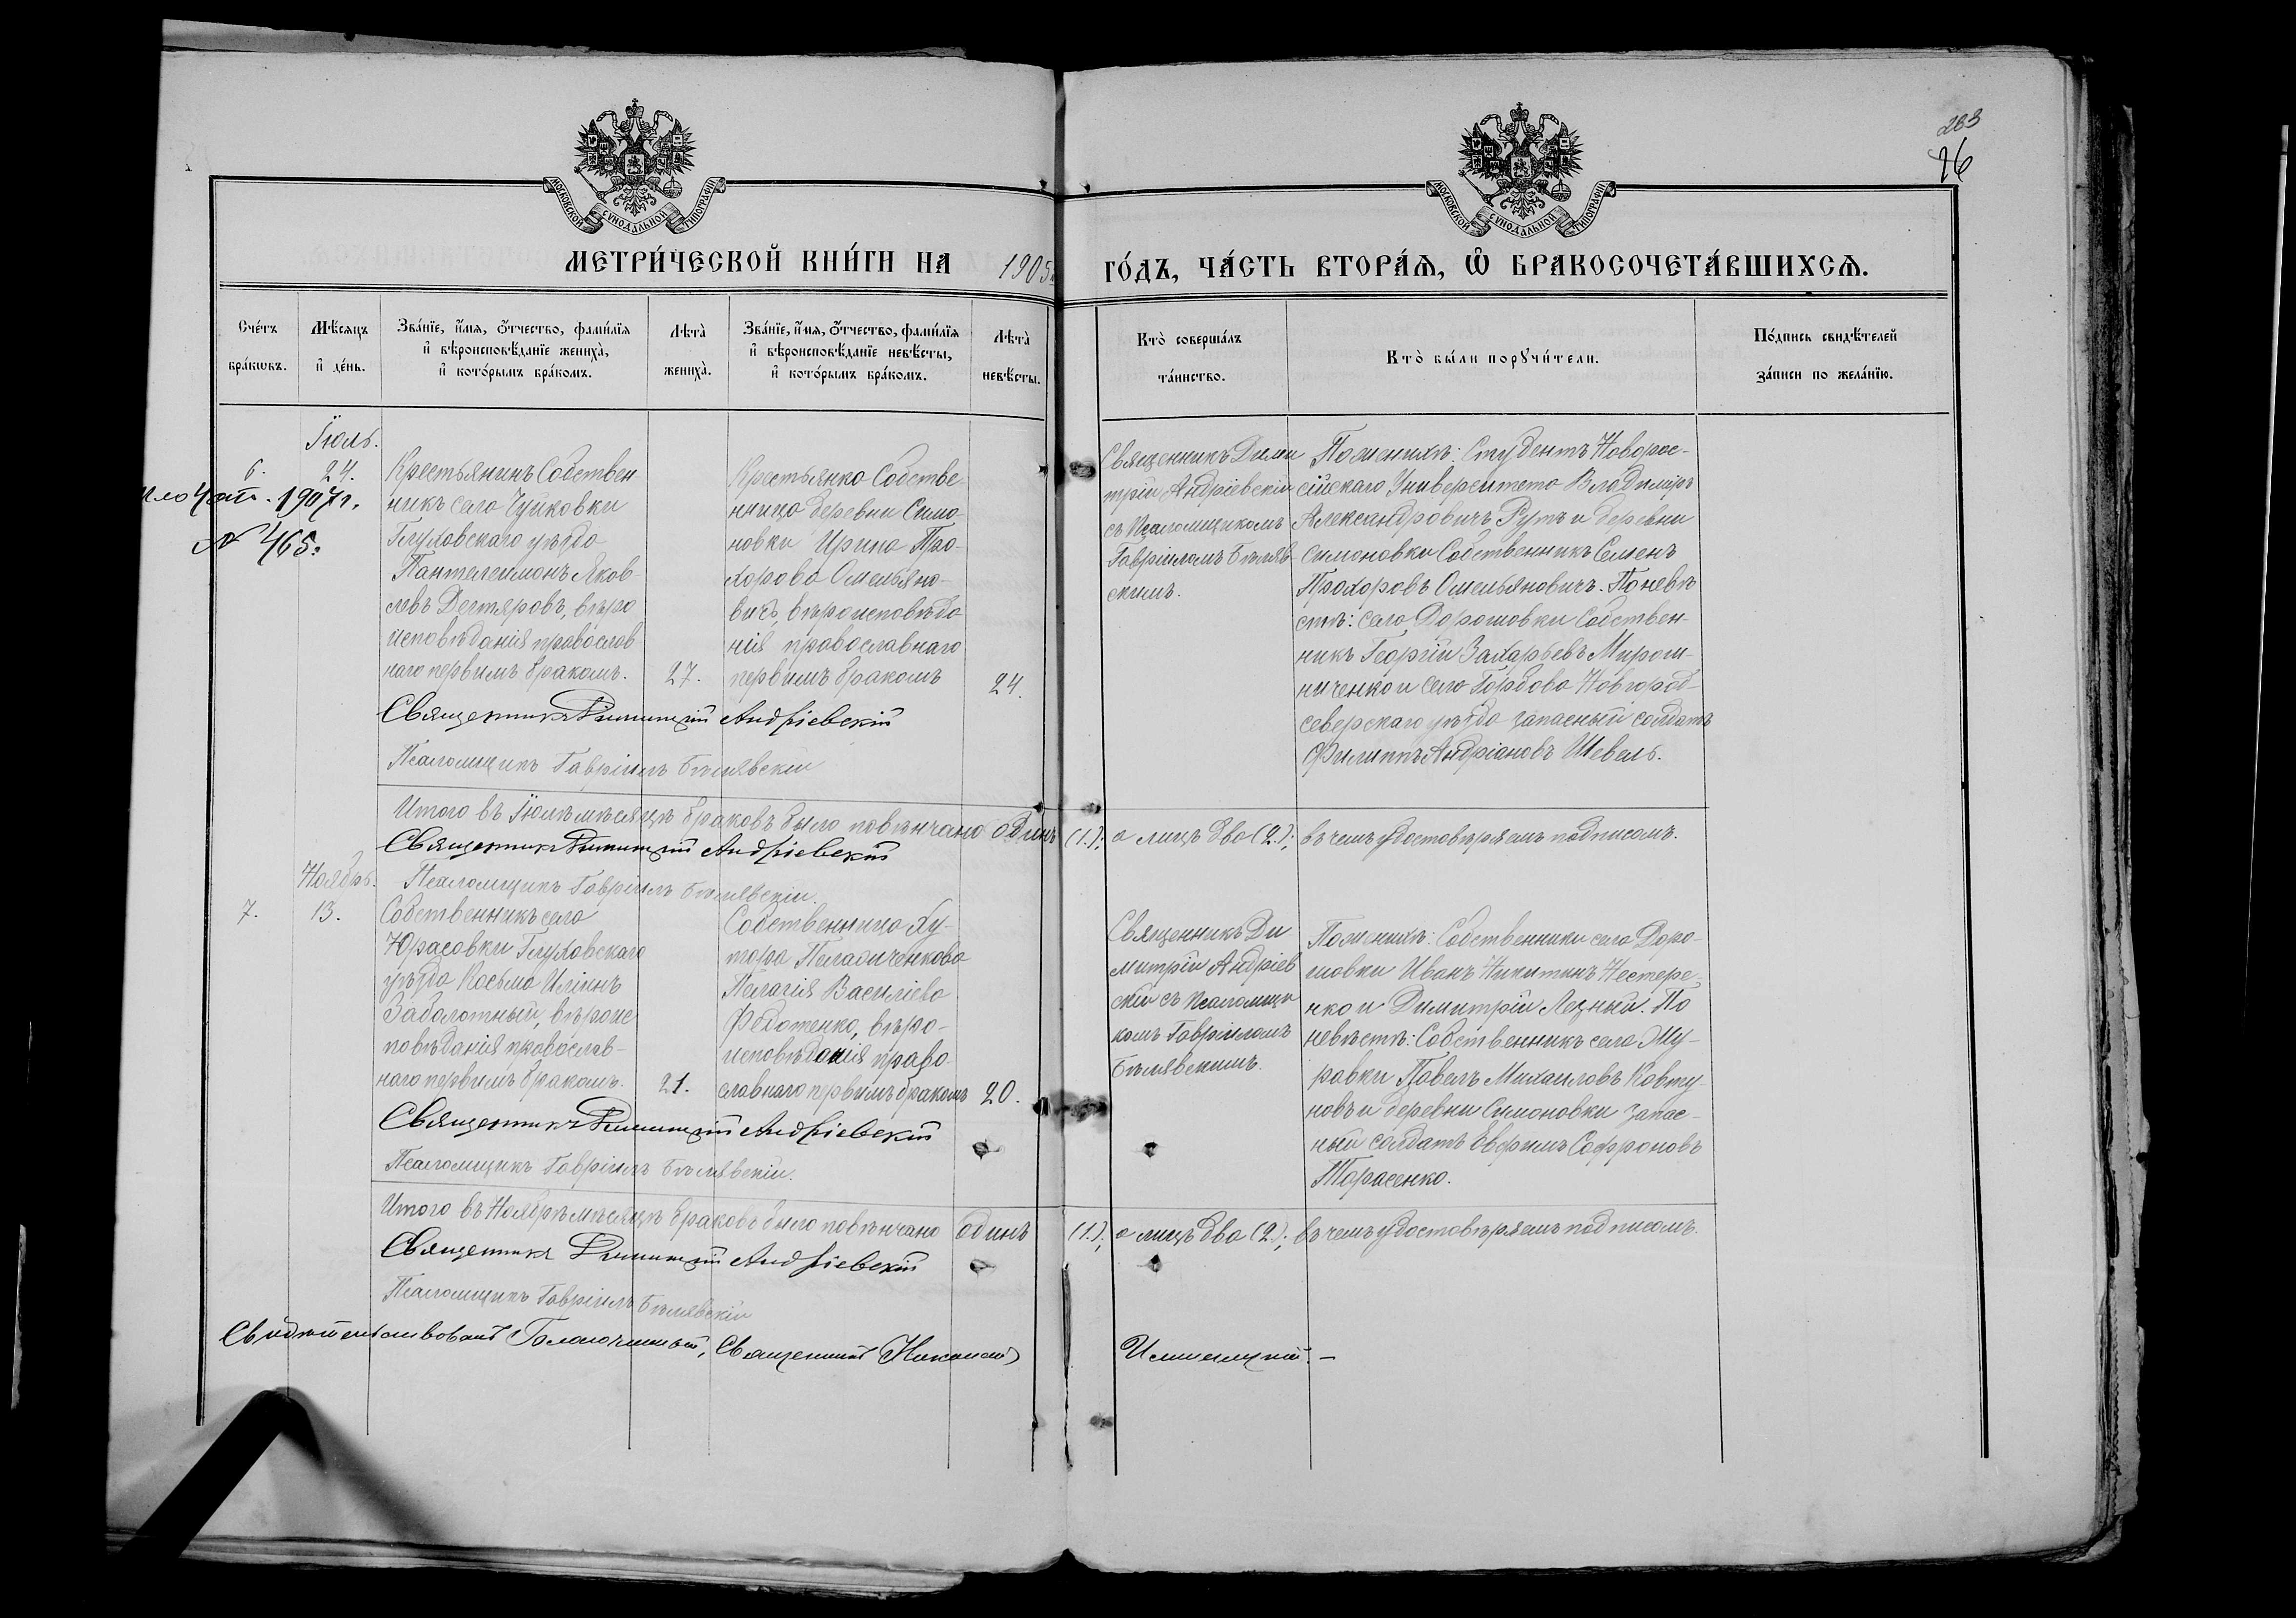 263
26
МОСКОВСКОЙ СѴНОДАЛЬНОЙ ТИПОГРАФІИ
МОСКОВСКОЙ СѴНОДАЛЬНОЙ ТИПОГРАФІИ
МЕТРИ́ЧЕСКОЙ КНИ́ГИ НА 1905
ГО́ДЪ, ЧА́СТЬ ВТОРА́Ѧ, Ѽ БРАКОСОЧЕТА́ВШИХСѦ.
Сче́тъ
бра́кѡвъ.
Мѣ́сѧцъ
и҆ де́нь.
Зва́нїе, и҆́мѧ, ѻ҆́тчество, фами́лїѧ
и҆ вѣроисповѣ́данїе жениха̀,
и҆ кото́рымъ бра́комъ.
Лѣта̀
жениха̀.
Зва́нїе, и҆́мѧ, ѻ҆́тчество, фами́лїѧ
и҆ вѣроисповѣ́данїе невѣ́сты,
и҆ кото́рымъ бра́комъ.
Лѣта̀
невѣ́сты.
Кто̀ соверша́лъ
та́инство.
Кто̀ бы́ли порꙋчи́тели.
По́дпись свидѣ́телей
за́писи по жела́нїю.
Іюль.
6.
24.
1907 г.
№ 465.
Крестьянинъ Собствен
никъ села Чуйковки
Глуховскаго уѣзда
Пантелеимонъ Яков-
левъ Дегтяровъ, вѣро
исповѣданія православ
наго первимъ бракомъ.
27.
Крестьянка Собстве
нница деревни Симо-
новки Ирина Про-
хорова Омельяно-
вичъ, вѣроисповѣда
нія православнаго
первимъ бракомъ
24.
Священникъ Дими
трій Андріевскій
съ Псаломщикомъ
Гавріиломъ Бѣляв-
скимъ.
По женихѣ: Студентъ Новорос-
сійскаго Университета Владиміръ
Александровичъ Рутъ и деревни
Симоновки Собственникъ Семенъ
Прохоровъ Омельяновичъ. По невѣ
стѣ: села Дорошовки Собствен-
никъ Георгій Захарьевъ Мирош-
ниченко и села Горбова Новгород-
северскаго уѣзда запасный солдатъ
Филиппъ Андріановъ Шевель.
Священникъ Димитрій Андріевскій
Псаломщикъ Гавріилъ Бѣлявскій
Итого въ Іюлѣ мѣсяцѣ браковъ было повѣнчано одинъ (1.); а лицъ два (2.); въ чемъ удостовѣряемъ подписомъ.
Священникъ Димитрій Андріевскій
Псаломщикъ Гавріилъ Бѣлявскій.
Ноябрь.
7.
13.
Собственникъ села
Юрасовки Глуховскаго
уѣзда Косьма Иліинъ
Заболотный, вѣроис
повѣданія православ-
наго первимъ бракомъ.
21.
Собственница ху-
тора
Пелагія Василіева
Федотенко, вѣро-
исповѣданія право
славнаго первимъ бракомъ
20.
Священникъ Ди
митрій Андріев
скій съ Псаломщи
комъ Гавріиломъ
Бѣлявскимъ.
По женихѣ: Собственники села Доро-
шовки Иванъ Никитинъ Нестере-
нко и Димитрій Лезный. По
невѣстѣ: Собственникъ села Жу-
равки Павелъ Михаиловъ Ковту-
новъ и деревни Симоновки запас-
ный солдатъ Евфимъ Софроновъ
Тарасенко.
Священникъ Димитрій Андріевскій
Псаломщикъ Гавріилъ Бѣлявскій.
Итого въ Ноябрѣ мѣсяцѣ браковъ было повѣнчано одинъ (1.); а лицъ два (2.); въ чемъ удостовѣряемъ подписомъ.
Священникъ Димитрій Андріевскій
Псаломщикъ Гавріилъ Бѣлявскій
Свидѣтельствовалъ Благочинный, Священникъ